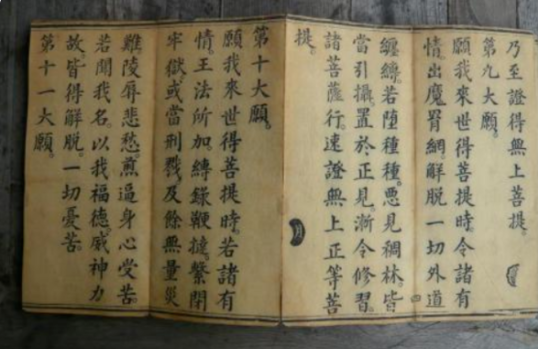 乃至證得無上菩提。
第九大願。
願我來世得菩提時。令諸有
情出魔罥網。解脫一切外道
纏縛。若墮種種。惡見稠林。皆
當引攝。置於正見。漸令修習。
諸菩薩行。速證無上正等菩
提。
第十大願。
願我來世得菩提時。若諸有
情。王法所加縛錄鞭撻。繫閉
牢獄或當刑戮。及餘無量災
難。陵辱悲愁煎逼身心受苦。
若聞我名。以我福德。威神力
故皆得解脫。一切憂苦。
第十一大願。